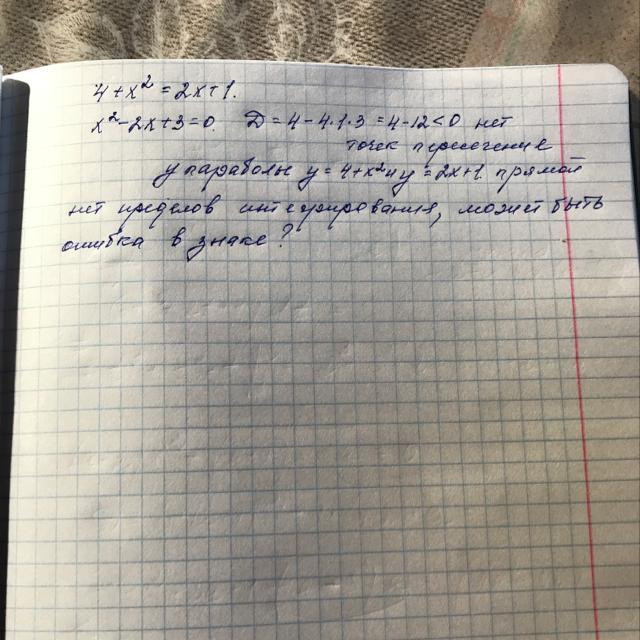 4+x²=2x+1.
x²-2x+3=0. D=4-4·1·3=4-12<0 нет
точек пересечение
у параболы y=4+x² и y=2x+1 прямой
нет пределов интегрирования, может быть
ошибка в знаке?